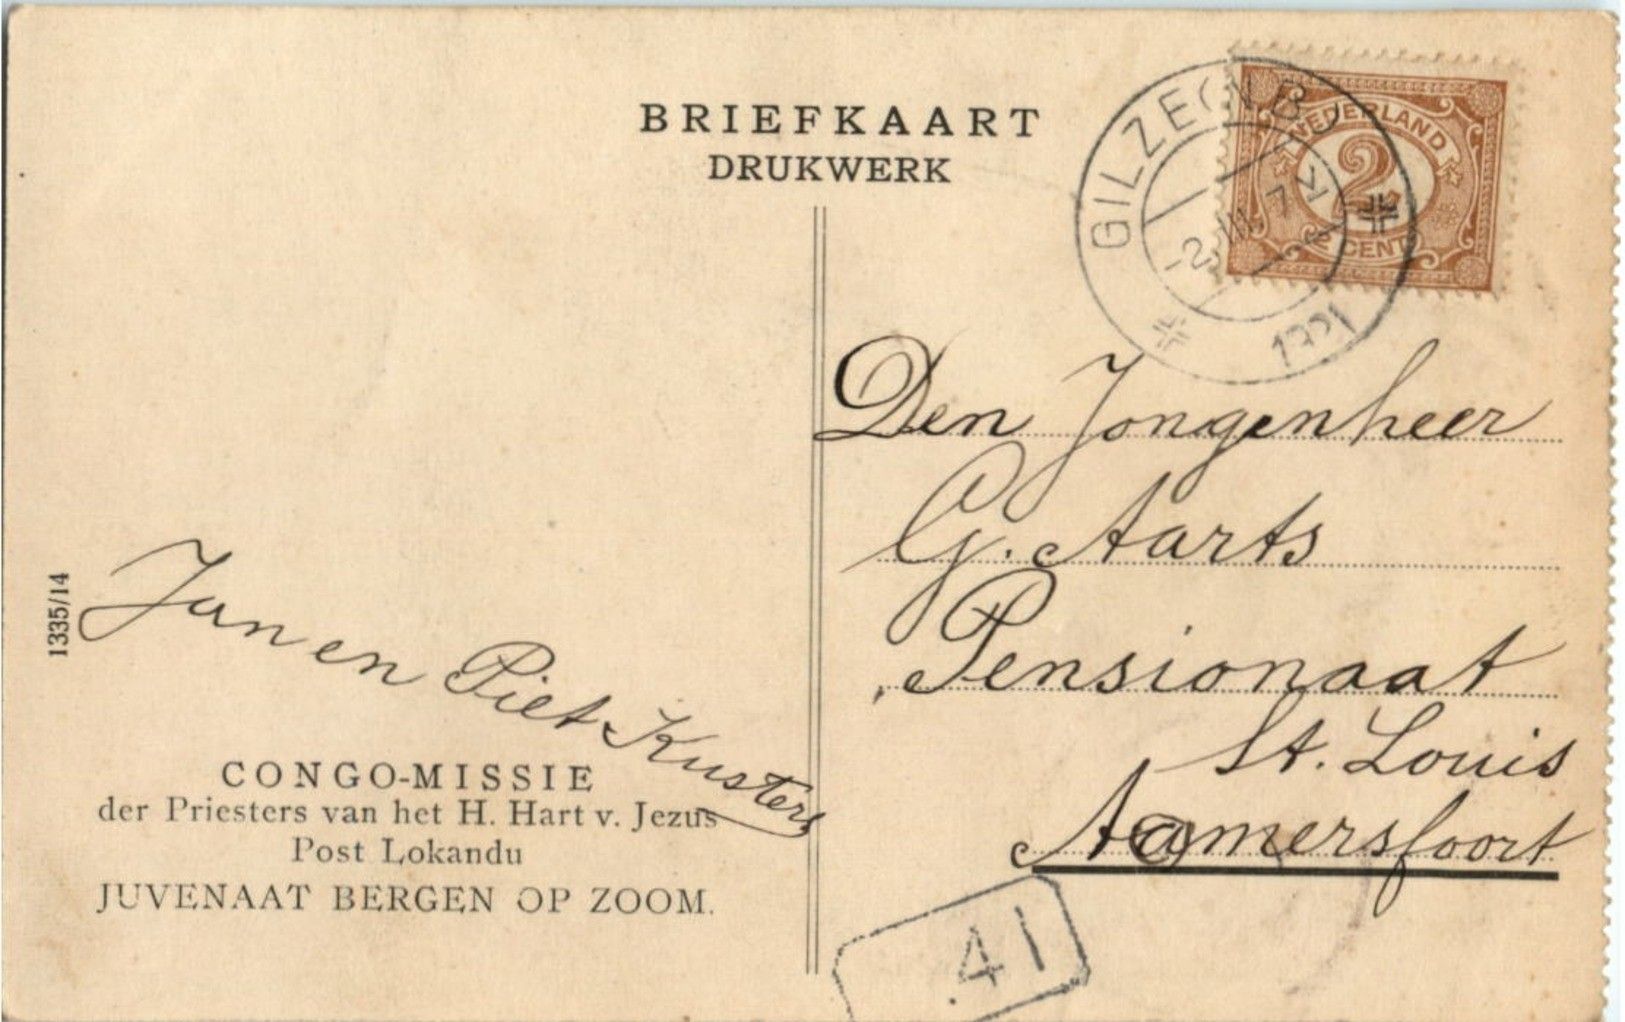 BRIEFKAART
DRUKWERK
GILZE(N.B.)
-2.III 7
1921
NEDERLAND
2
2 CENT
Den Jongenheer
G. Aarts
Pensionaat
St. Louis
Aamersfoort
41
1335/14
Jan en Piet Kusters
CONGO-MISSIE
der Priesters van het H. Hart v. Jezus
Post Lokandu
JUVENAAT BERGEN OP ZOOM.